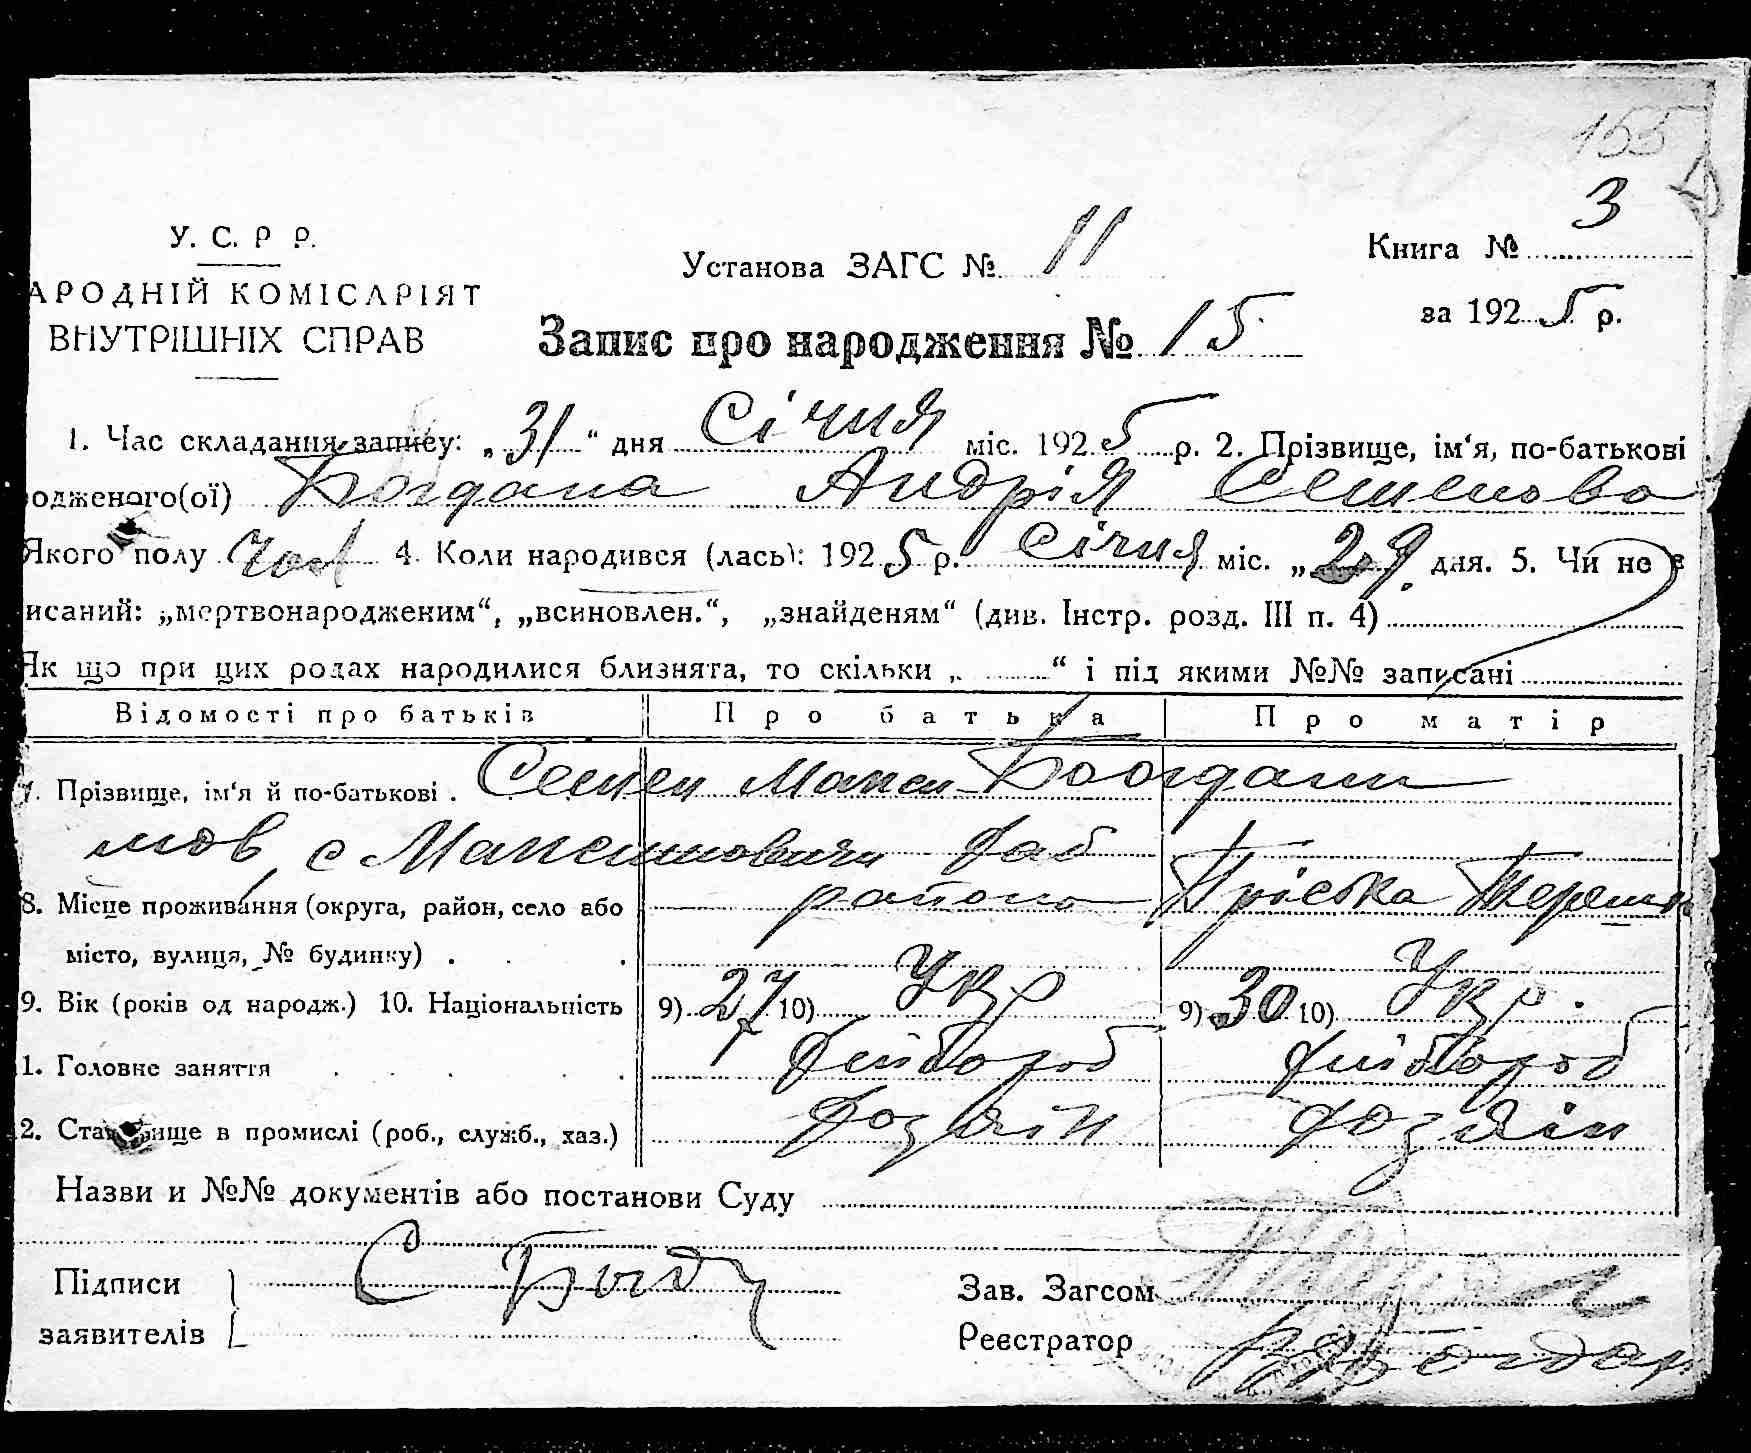 155
3
У. С. Р Р.
Установа ЗАГС № 11
Книга №
АРОДНІЙ КОМІСАРІЯТ
за 1925 р.
ВНУТРІШНІХ СПРАВ
Запис про народження № 15
1. Час складання запису: „31“ дня Січня міс. 1925 р. 2. Прізвище, ім‘я, по-батькові
одженого(ої) Богдана Андрія Семенова
Якого полу чол 4. Коли народився (лась): 1925 р. Січня міс. „29 дня. 5. Чи не є
исаний: „мертвонародженим“, „всиновлен.“, „знайденям“ (див. Інстр. розд. III п. 4)
Як що при цих родах народилися близнята, то скільки „ “ і під якими №№ записані
Відомості про батьків Про батька Про матір
7. Прізвище, ім‘я й по-батькові . Семен Макси Богдани
мов с Максимовичи
8. Місце проживання (округа, район, село або району Пріська
місто, вулиця, № будинку) . . .
9. Вік (років од народж.) 10. Національність 9) 27 10) Укр 9) 30 10) Укр.
1. Головне заняття . . . . . Хлібороб Хлібороб
2. Становище в промислі (роб., служб., хаз.) Хозяїн Хозяїн
Назви и №№ документів або постанови Суду
Підписи С Богд
Зав. Загсом
заявителів
Реєстратор Богдан